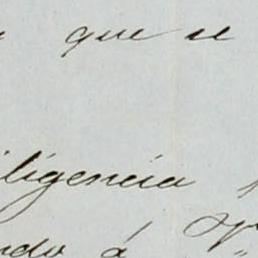 que se
iligencia
ndo á